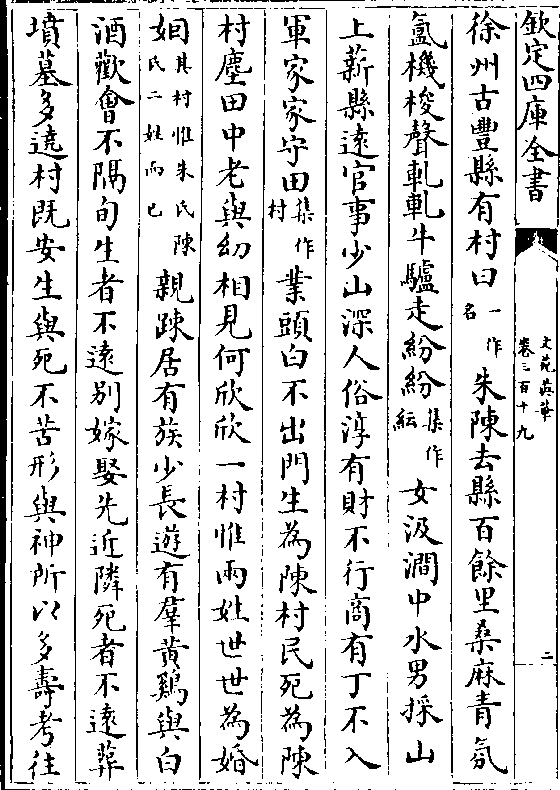 欽定四庫全書
文苑英華
卷三百十九
二
徐州古豐縣有村曰一作名朱陳去縣百餘里桑麻青氛
氲機梭聲軋軋牛驢走紛紛集作紜女汲澗中水男採山
上薪縣遠官事少山深人俗淳有財不行商有丁不入
軍家家守田集作村業頭白不出門生為陳村民死為陳
村塵田中老與幼相見何欣欣一村惟兩姓世世為婚
姻其村惟朱氏陳氏二姓而已親踈居有族少長遊有羣黄鷄與白
酒歡㑹不隔旬生者不遠别嫁娶先近隣死者不遠葬
墳墓多遶村既安生與死不苦形與神所以多壽考往